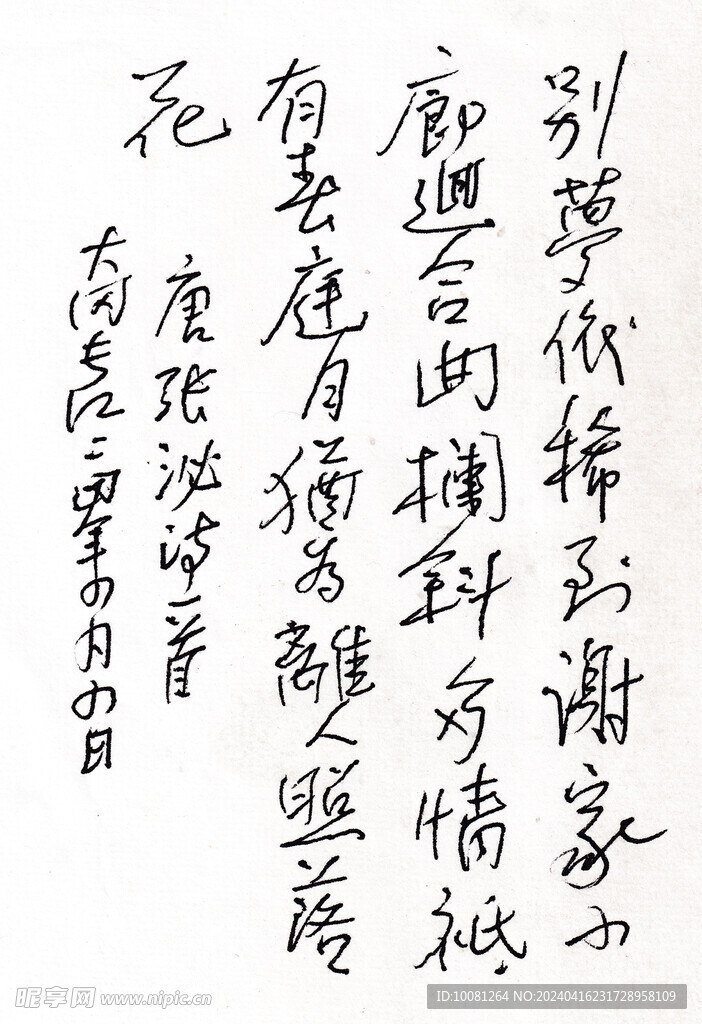 別夢依稀到謝家小
廊迴合曲欄斜多情祇
有春庭月猶為離人照落
花
唐張泌詩一首
大 長江二 年 月 日
昵享网 www.nipic.cn
ID:10081264 NO:20240416231728958109